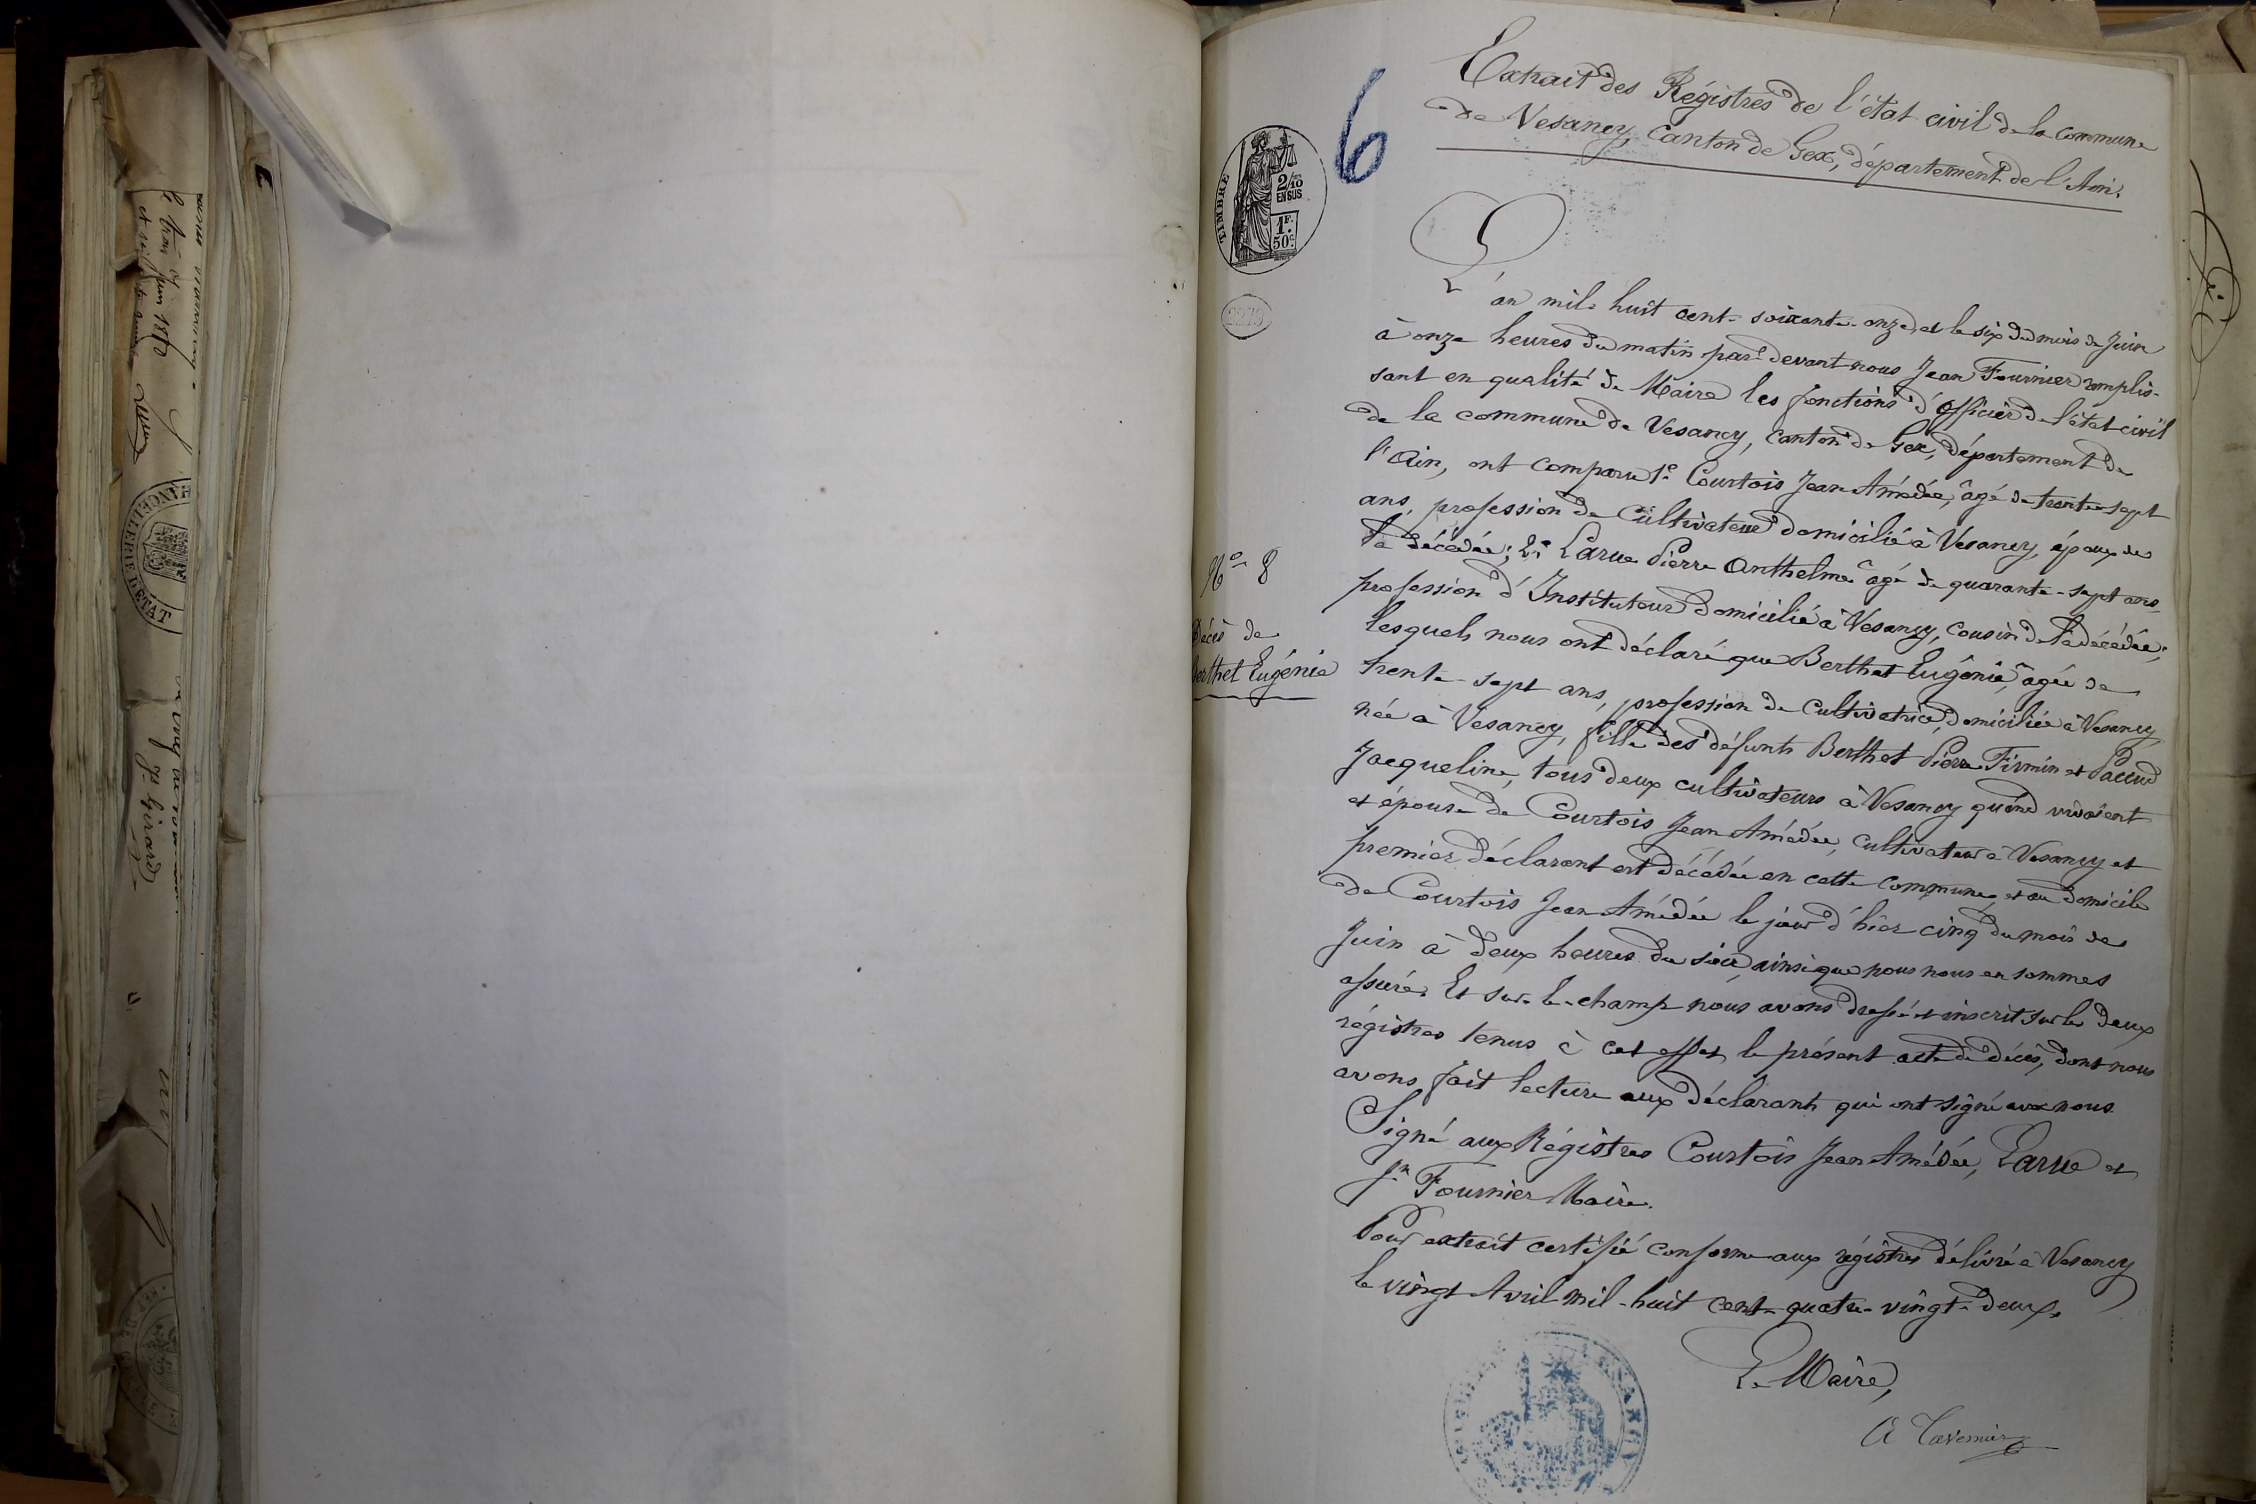 Extrait des Régistres de l'état civil de la commune
de Vesancy, Canton de Gex, département de l'Ain.
6
TIMBRE
2/10
EN SUS
1F.
50c.
L'an mil huit cent soixante-onze, et le six du mois de Juin
à onze heures du matin par-devant nous Jean Fournier remplis-
sant en qualité de Maire les fonctions d'officier de l'état civil
de la commune de Vesancy, Canton de Gex, département de
l'Ain, ont comparu 1° Courtois Jean Amédée, âgé de trente-sept
ans, profession de Cultivateur domicilié à Vesancy, époux de
la décédée; 2° Larue Pierre Anthelme âgé de quarante-sept ans
profession d'Instituteur domicilié à Vesancy, cousin de la décédée;
lesquels nous ont déclaré que Berthet Eugénie, âgée de
trente-sept ans, profession de Cultivatrice, domiciliée à Vesancy
née à Vesancy, fille des défunts Berthet Pierre Firmin et
Jacqueline, tous deux cultivateurs à Vesancy quand vivaient
et épouse de Courtois Jean Amédée, cultivateur à Vesancy et
premier déclarant est décédée en cette commune, et au domicile
de Courtois Jean Amédée le jour d'hier cinq du mois de
Juin à deux heures du soir, ainsi que nous nous en sommes
assuré. Et sur-le-champ nous avons dressé et inscrit sur les deux
régistres tenus à cet effet, le présent acte de décès, dont nous
avons fait lecture aux déclarants qui ont signé avec nous.
Signé aux Régistres Courtois Jean Amédée, Larue et
Jn Fournier Maire.
Pour extrait certifié conforme aux régistres délivré à Vesancy
le vingt Avril mil-huit cent quatre-vingt-deux,
Le Maire,
A Tavernier
No 8
Décès de
Berthet Eugénie